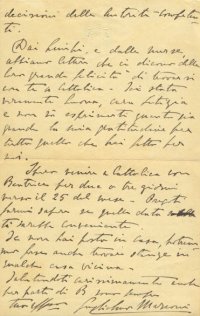 decisione della Autorità competen-
te.
Dai bimbi, e dalla nurse,
abbiamo lettere che ci dicono della
loro grande felicità di trovarsi
con te a Cattolica. Sei stata
veramente buona, cara
e non so esprimerti quanto sia
grande la mia gratitudine per
tutto quello che hai fatto per
noi.
Spero venire a Cattolica con
Beatrice per due o tre giorni
verso il 25 del mese. Prego
farmi sapere se quella data
ti sarebbe conveniente.
Se non hai posto in casa, potrem-
mo forse anche trovare stanze in
qualche casa vicina.
Salutandoti carissimamente anche
per parte di B sono sempre
tuo affmo Guglielmo Marconi